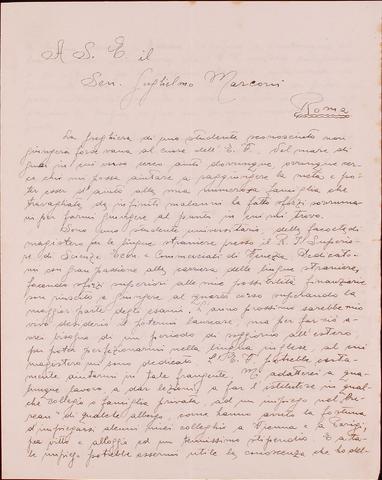 A S. E. il
Sen. Guglielmo Marconi
Roma
La preghiera di uno studente sconosciuto non
giungerà forse vana al cuore dell'E. V. Nel mare di
guai in cui verso cerco aiuto dovunque, ovunque cer-
co chi mi possa aiutare a raggiungere la meta e po-
ter esser d'aiuto alla mia numerosa famiglia che
travagliata da infiniti malanni ha fatto sforzi sovruma-
ni per farmi giungere al punto in cui mi trovo.
Sono uno studente universitario, della facoltà di
magistero per le lingue straniere presso il R. I. Superiore
di Scienze Econ. e Commerciali di Venezia. Dedicato-
mi con gran passione alla carriera delle lingue straniere,
facendo sforzi superiori alle mie possibilità finanziarie
son riuscito a giungere al quarto corso superando la
maggior parte degli esami. L'anno prossimo sarebbe mio
vivo desiderio il potermi laureare, ma per far ciò a-
vrei bisogno di un periodo di soggiorno all'estero,
per poter perfezionarmi nella lingua inglese al cui
magistero mi sono dedicato. L'E. V. potrebbe certa-
mente aiutarmi in tale frangente. Mi adatterei a qua-
lunque lavoro, a dar lezioni, a far l'istitutore in qual-
che collegio o famiglia privata, ad un impiego nel "Bu-
reau" di qualche albergo, come hanno avuto la fortuna
d'impiegarsi alcuni miei colleghi a Vienna e a Parigi,
per vitto e alloggio ed un tenuissimo stipendio. E a ta-
le impiego potrebbe essermi utile la conoscenza che ho del-